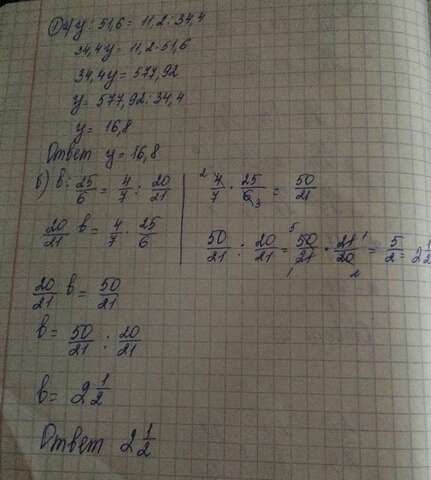 ① а) y : 51,6 = 11,2 : 34,4
34,4y = 11,2 · 51,6
34,4y = 577,92
y = 577,92 : 34,4
y = 16,8
Ответ y = 16,8
б) в : 25/6 = 4/7 : 20/21
20/21 в = 4/7 · 25/6
20/21 в = 50/21
в = 50/21 : 20/21
в = 2 1/2
Ответ 2 1/2
2 4/7 · 25/6 3 = 50/21
50/21 : 20/21 = 5 50/21 1 · 21/20 1 2 = 5/2 = 2 1/2